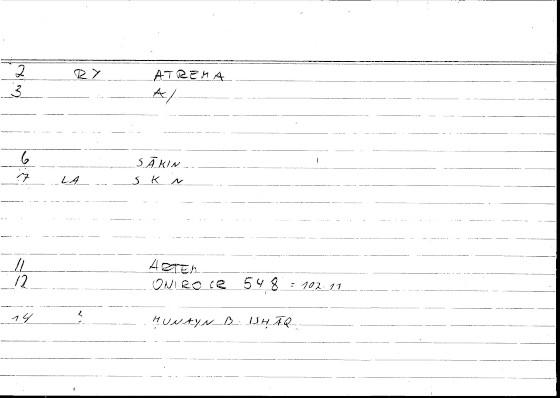 2 RY ATREMA
3 A/
6 SĀKIN
7 LA S K N
11 ARTEM
12 ONIROCR 548 = 102.11
14 " ḤUNAYN B ISḤĀQ